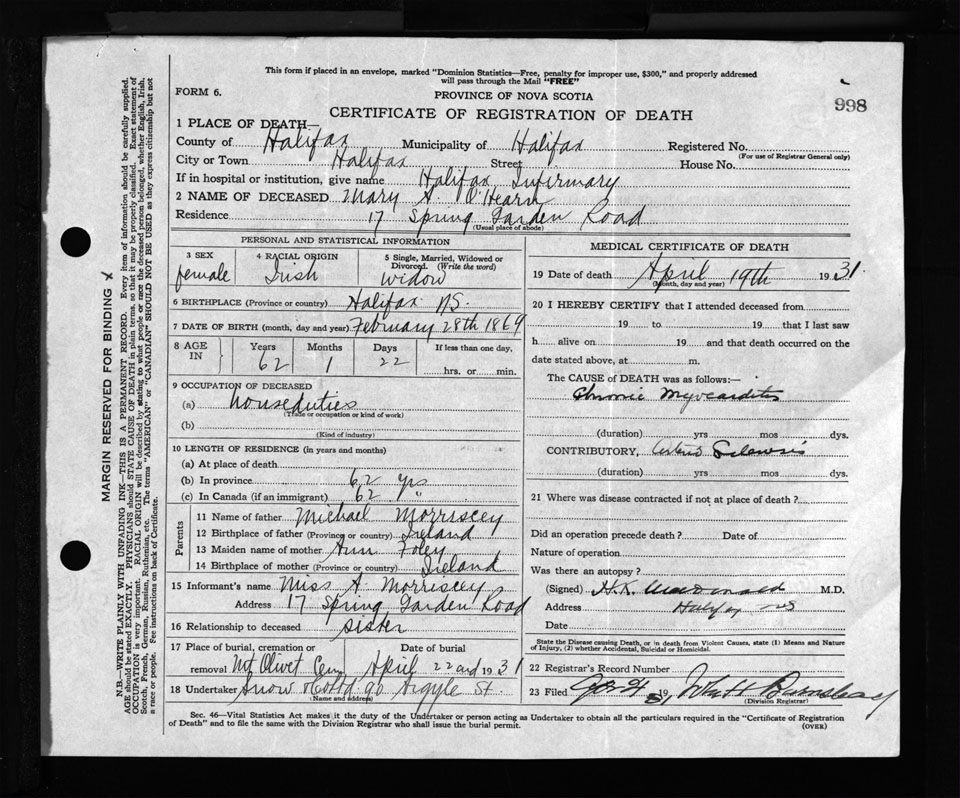 This form if placed in an envelope, marked "Dominion Statistics—Free, penalty for improper use, $300," and properly addressed
will pass through the Mail "FREE"
FORM 6.
PROVINCE OF NOVA SCOTIA
998
CERTIFICATE OF REGISTRATION OF DEATH
1 PLACE OF DEATH—
County of Halifax Municipality of Halifax Registered No.
(For use of Registrar General only)
City or Town Halifax Street House No.
If in hospital or institution, give name Halifax Infirmary
2 NAME OF DECEASED Mary A. O'Hearn
Residence 17 Spring Garden Road
(Usual place of abode)
PERSONAL AND STATISTICAL INFORMATION
3 SEX 4 RACIAL ORIGIN 5 Single, Married, Widowed or
Divorced. (Write the word)
female Irish widow
6 BIRTHPLACE (Province or country) Halifax N.S.
7 DATE OF BIRTH (month, day and year) February 28th 1869
8 AGE IN Years Months Days If less than one day,
62 1 22 hrs. or min.
9 OCCUPATION OF DECEASED
(a) houseduties
(Trade or occupation or kind of work)
(b)
(Kind of industry)
10 LENGTH OF RESIDENCE (in years and months)
(a) At place of death
(b) In province 62 yrs
(c) In Canada (if an immigrant) 62 "
Parents
11 Name of father Michael Morriscey
12 Birthplace of father (Province or country) Ireland
13 Maiden name of mother Ann Foley
14 Birthplace of mother (Province or country) Ireland
15 Informant's name Miss A. Morriscey
Address 17 Spring Garden Road
16 Relationship to deceased sister
17 Place of burial, cremation or Date of burial
removal Mt Olivet Cem April 22nd 1931
18 Undertaker Snow & Co Ltd 90 Argyle St.
(Name and address)
MEDICAL CERTIFICATE OF DEATH
19 Date of death April 19th 1931.
(Month, day and year)
20 I HEREBY CERTIFY that I attended deceased from
19 to 19 that I last saw
h alive on 19 and that death occurred on the
date stated above, at m.
The CAUSE of DEATH was as follows:—
Chronic Myocarditis
(duration) yrs mos dys.
CONTRIBUTORY, Sclerosis
(duration) yrs mos dys.
21 Where was disease contracted if not at place of death?
Did an operation precede death? Date of
Nature of operation
Was there an autopsy?
(Signed) H.K. MacDonald M.D.
Address Halifax NS
Date
State the Disease causing Death, or in death from Violent Causes, state (1) Means and Nature
of Injury, (2) whether Accidental, Suicidal or Homicidal.
22 Registrar's Record Number
23 Filed 1931
(Division Registrar)
Sec. 46—Vital Statistics Act makes it the duty of the Undertaker or person acting as Undertaker to obtain all the particulars required in the "Certificate of Registration
of Death" and to file the same with the Division Registrar who shall issue the burial permit.
(OVER)
MARGIN RESERVED FOR BINDING
N.B.—WRITE PLAINLY WITH UNFADING INK—THIS IS A PERMANENT RECORD. Every item of information should be carefully supplied.
AGE should be stated EXACTLY. PHYSICIANS should STATE CAUSE OF DEATH in plain terms, so that it may be properly classified. Exact statement of
OCCUPATION is very important. RACIAL ORIGIN will be described by stating to what people or race the deceased person belonged, whether English, Irish,
Scotch, French, German, Russian, Ruthenian, etc. The terms "AMERICAN" or "CANADIAN" SHOULD NOT BE USED as they express citizenship but not
a race or people. See instructions on back of Certificate.